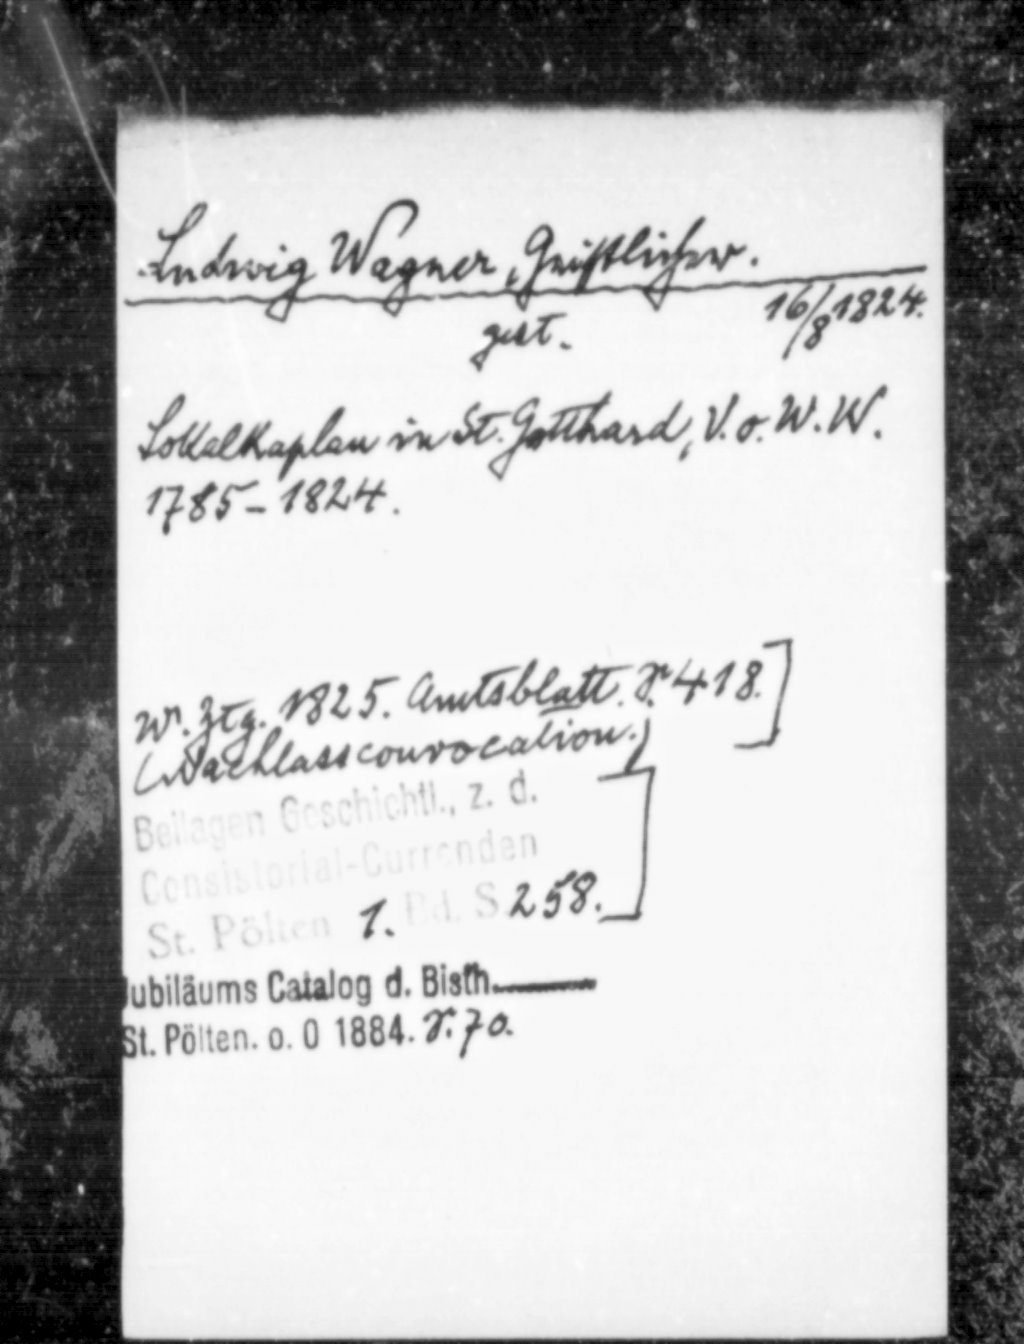 Ludwig Wagner, Geistlicher.
gest. 16/8 1824.
Lokalkaplan in St. Gotthard, V. o. W. W.
1785-1824.
Wr. Ztg. 1825. Amtsblatt. S. 418.
(Nachlassconvocation.)
Beilagen Geschichtl., z. d.
Consistorial-Currenden
St. Pölten 1. Bd. S 258.
Jubiläums Catalog d. Bisth.
St. Pölten. o. O 1884. S. 70.